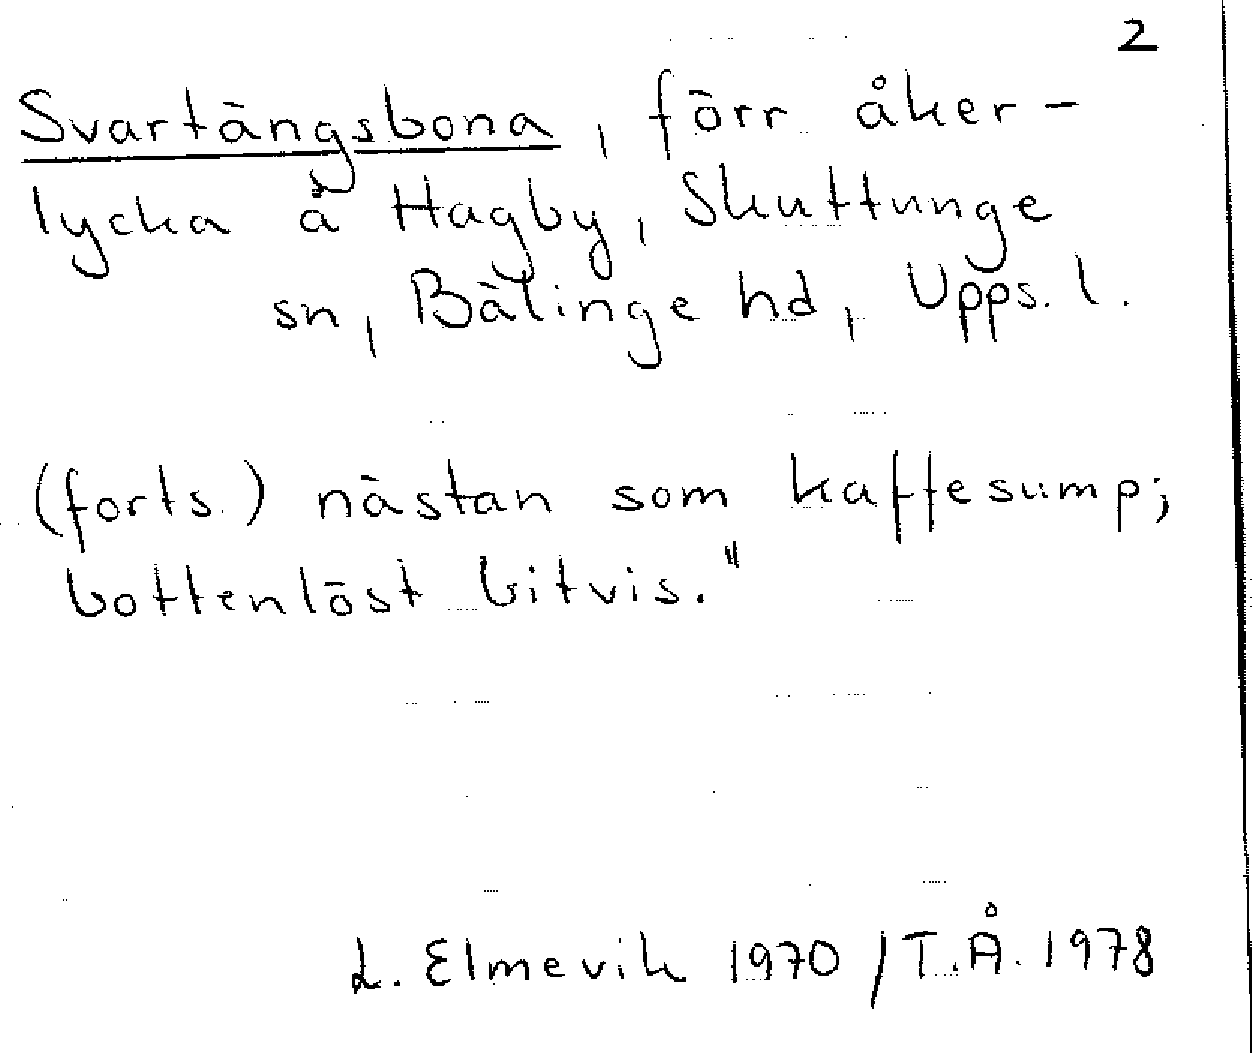 2
Svartängsbona, förr åker-
lycka å Hagby, Skuttunge
sn, Bälinge hd, Upps. l.
(forts.) nästan som kaffesump;
bottenlöst bitvis."
L. Elmevik 1970 / T.Å. 1978